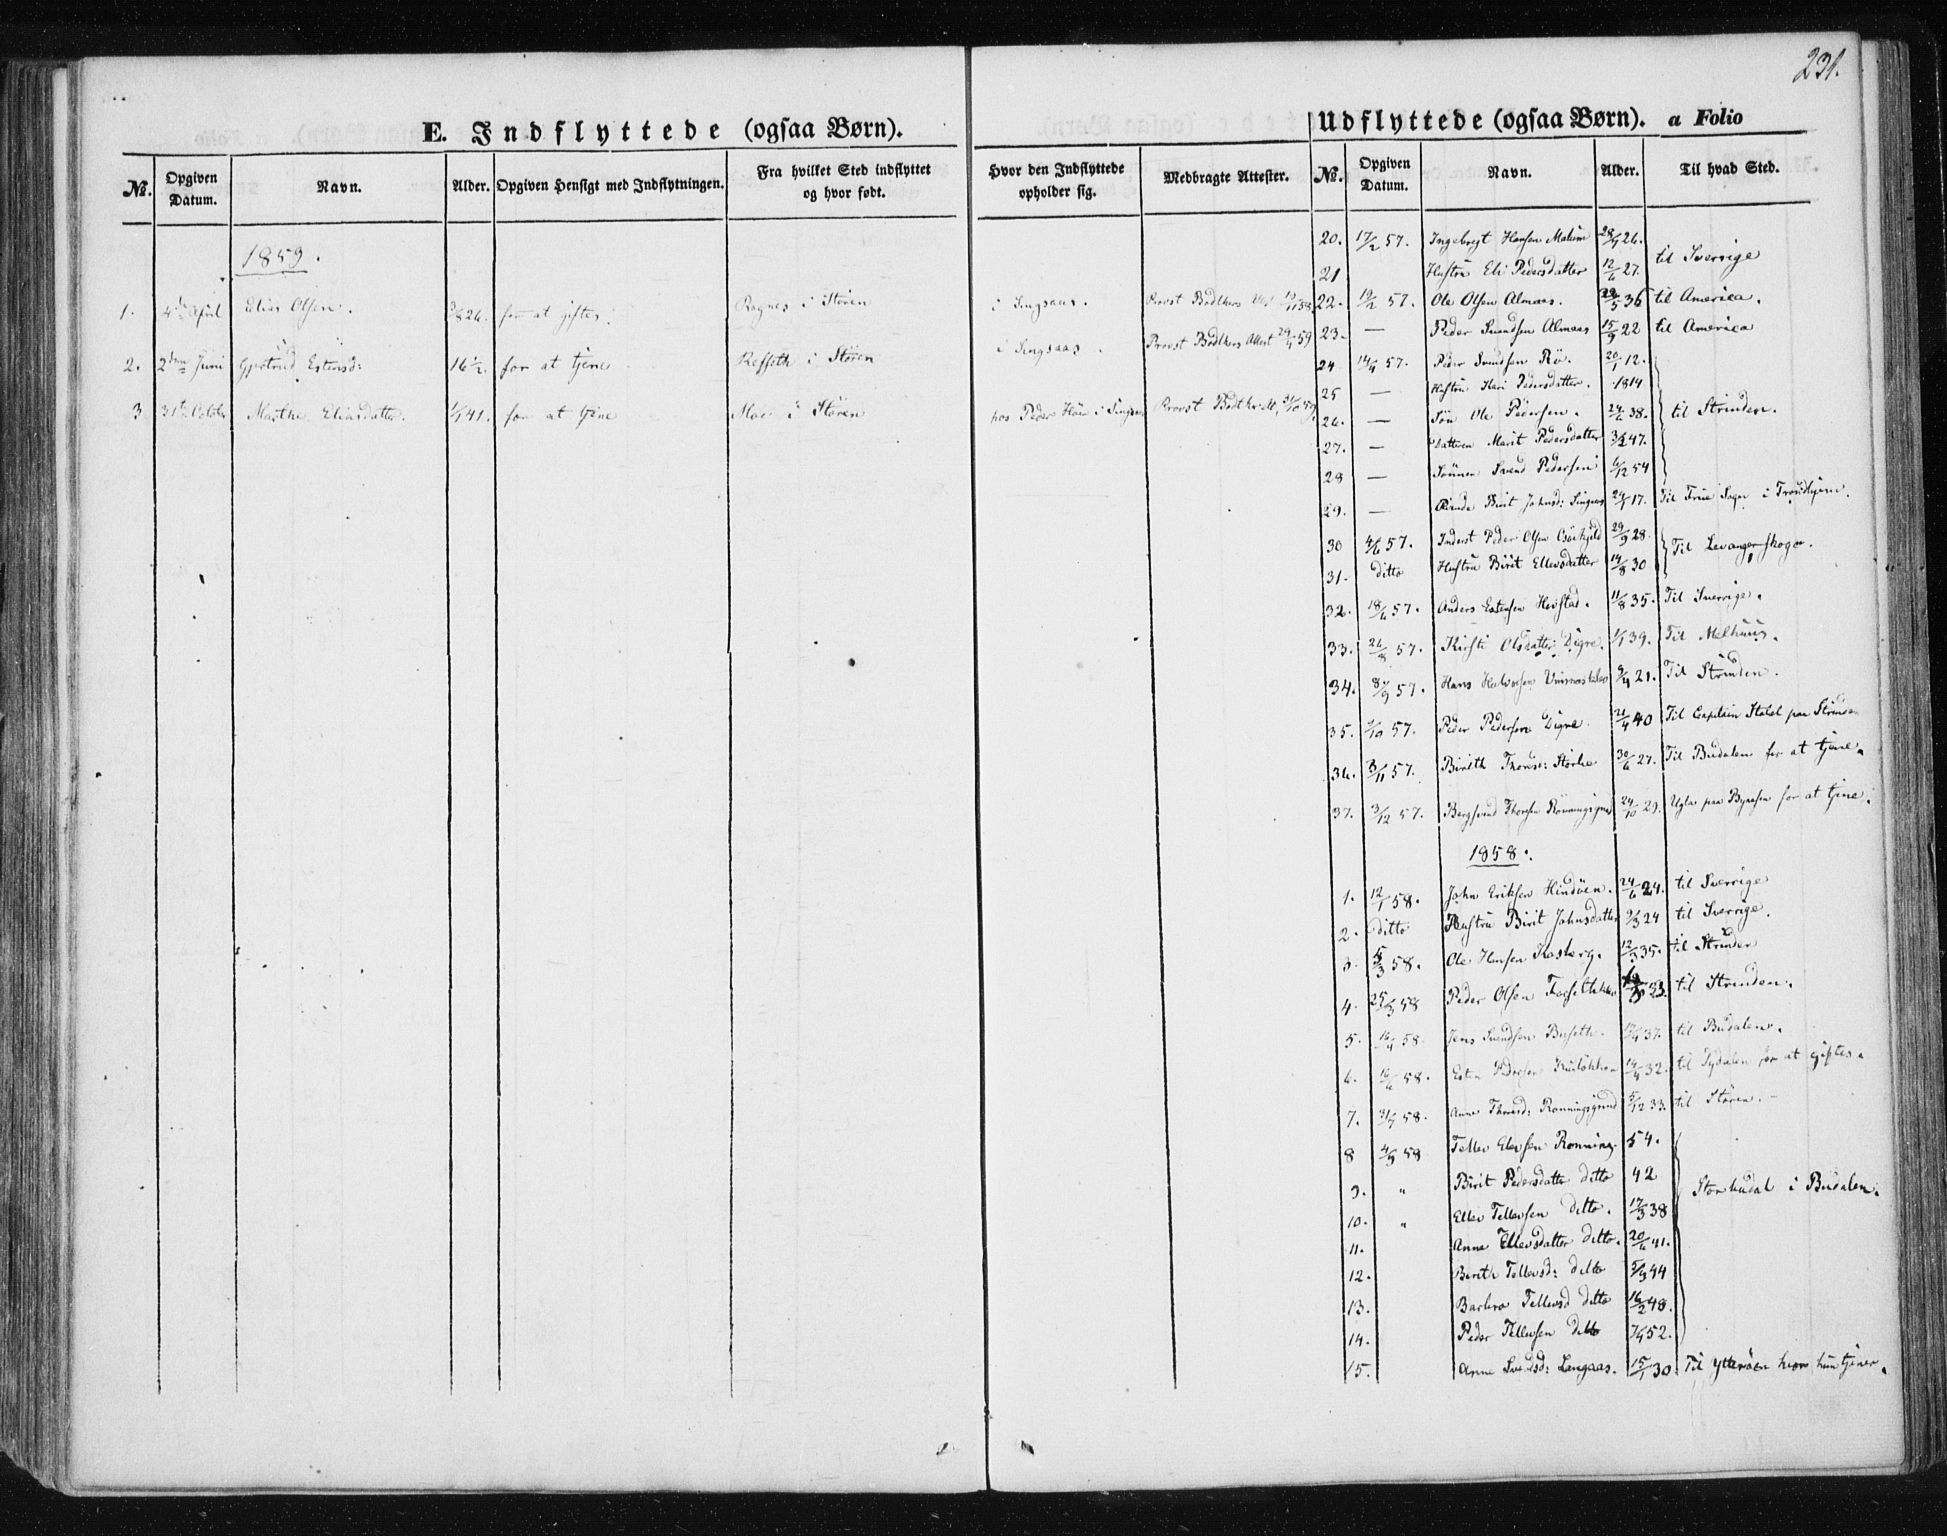 231.
E. Indflyttede (ogsaa Børn).
No. Opgiven Datum. Navn. Alder. Opgiven Hensigt med Indflytningen. Fra hvilket Sted indflyttet og hvor født. Hvor den Indflyttede opholder sig. Medbragte Attester.
1859.
1. 4de April Elias Olsen. 3/8 26. for at giftes. Rognes i Støren i Singsaas. Provst Bødtkers Att.
2. 2den Juni Gjertrud Estensd: 16 1/2 for at tjene Refseth i Støren i Singsaas. Provst Bødtkers Attest 29/4 59
3 31te October Marthe Eliasdatter. 1/1 41. for at tjene Moe i Støren hos Peder i Singsaas Provst Bødtker
Udflyttede (ogsaa Børn). a Folio
No. Opgiven Datum. Navn. Alder. Til hvad Sted.
20. 17/2 57. Ingebrigt Hansen 26. til Sverrige
21 Hustru Eli Pedersdatter 12/6 27.
22. 19/2 57. Ole Olsen Almaas. 36 til America.
23. — Peder Svendsen Almaas 15/9 22 til America
24 14/4 57. Peder Svendsen Rø. 20/1 12.
25 — Hustru Kari Pedersdatter. 1814
26. — Søn Ole Pedersen. 24/6 38. til Strinden.
27. — Datteren Marit Pedersdatter 47.
28 — Sønnen Svend Pedersen 6/12 54
29. — Birit Johnsd: Singsaas 17. Til Frue Sogn i Trondhjem.
30 4/6 57. Inderst Peder Olsen 29/9 28. Til Levangerskoge.
31. ditto Hustru Birit Ellevsdatter 14/8 30
32. 18/6 57. Anders Estensen Hovstad. 11/8 35. Til Sverrige.
33. 26/8 57. Kirsti Olsdatter Digre. 1/1 39. Til Melhuus.
34. 8/9 57. Hans Halvorsen 21. Til Strinden.
35. 57. Peder Pedersen Digre. 21/4 40 Til Captain paa Strinden
36. 3/11 57. Birith Thorsd: Storlie 30/6 27. Til Budalen for at tjene.
37. 3/12 57. Bergsvend Thorsen 24/10 29. Ugla paa Byaasen for at tjene.
1858.
1. 12/1 58. John Eriksen Hindøen. 24/6 24. til Sverrige
2. ditto Hustru Birit Johnsdatter 24 til Sverrige.
3. 5/3 58. Ole Hansen Kosberg. 12/3 35. til Strinden
4. 25/3 58 Peder Olsen 23. til Strinden.
5. 16/4 58. Jens Svendsen Buseth. 37. til Budalen.
6. 16/6 58. Esten Pedersen 32. til Tydalen for at giftes.
7. 31/7 58. Anne Thorsd: 5/12 33. til Støren. -
8 4/9 58 Tellev Elevsen Rønning. 54.
9. " Birit Pedersdatter ditto 42 Storbudal i Budalen.
10. " Ellev Tellevsen ditto. 17/3 38
11. Anne Tellevsdatter ditto. 20/6 41.
12. Berith Tellevsd: ditto 44
13. Barbro Tellevsd ditto 16/2 48.
14. Peder Tellevsen ditto 52.
15. Anne Svendsd: Langaas. 15/1 30. Til Ytterøen hvor hun tjener.